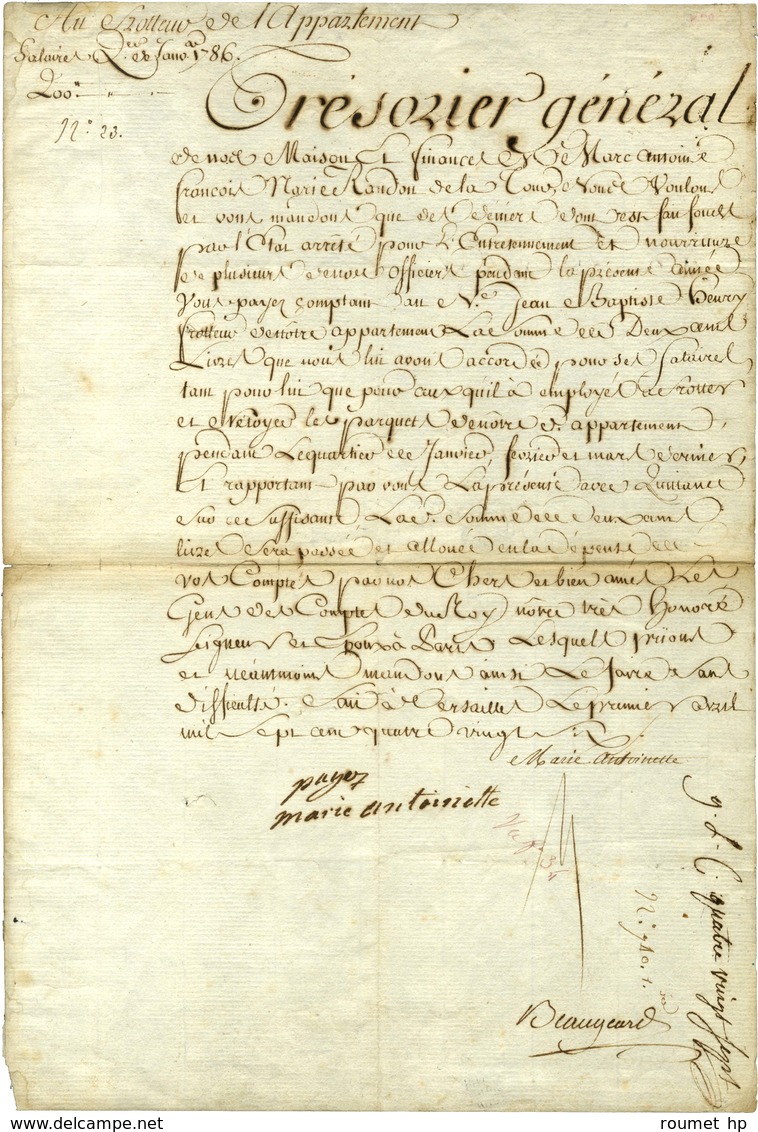 Au frotteur de l'Appartement
Salaires Q.er de Janv.er 1786.
200.ll
N.° 23.
Trésorier général
de notre Maison Et finances M.e Marc Antoine
françois Marie Randon de la Tour, Nous Voulons
et vous mandons que des deniers dont est fait fonds
par l'Etat arrêté pour L'Entretennement et nourriture
de plusieurs de nos officiers pendant la présente année
Vous payez comptant au S.r Jean Baptiste Henry
frotteur de notre appartement La somme de Deux cent
Livres que nous lui avons accordée pour ses salaires
tant pour lui que pour ceux qu'il à employés à frotter
et netoyer les parquets de nôtre d. appartement
pendant Le quartier de Janvier, fevrier et mars dernier,
Et rapportant par vous La présente avec Quittance
sur ce suffisante La d. somme de deux cent
livres sera passée et allouée en la dépense de
vos Comptes par nos Chers et bien amés Les
Gens des Comptes du Roy nôtre très Honoré
Seigneur et Epoux à Paris Lesquels prions
et néanmoins mandons ainsi Le faire sans
difficulté. fait à Versailles Le premier avril
mil sept cent quatre vingt six
Marie Antoinette
payez
marie antoinette
Beaugeard
quatre vingt sept
roumet hp